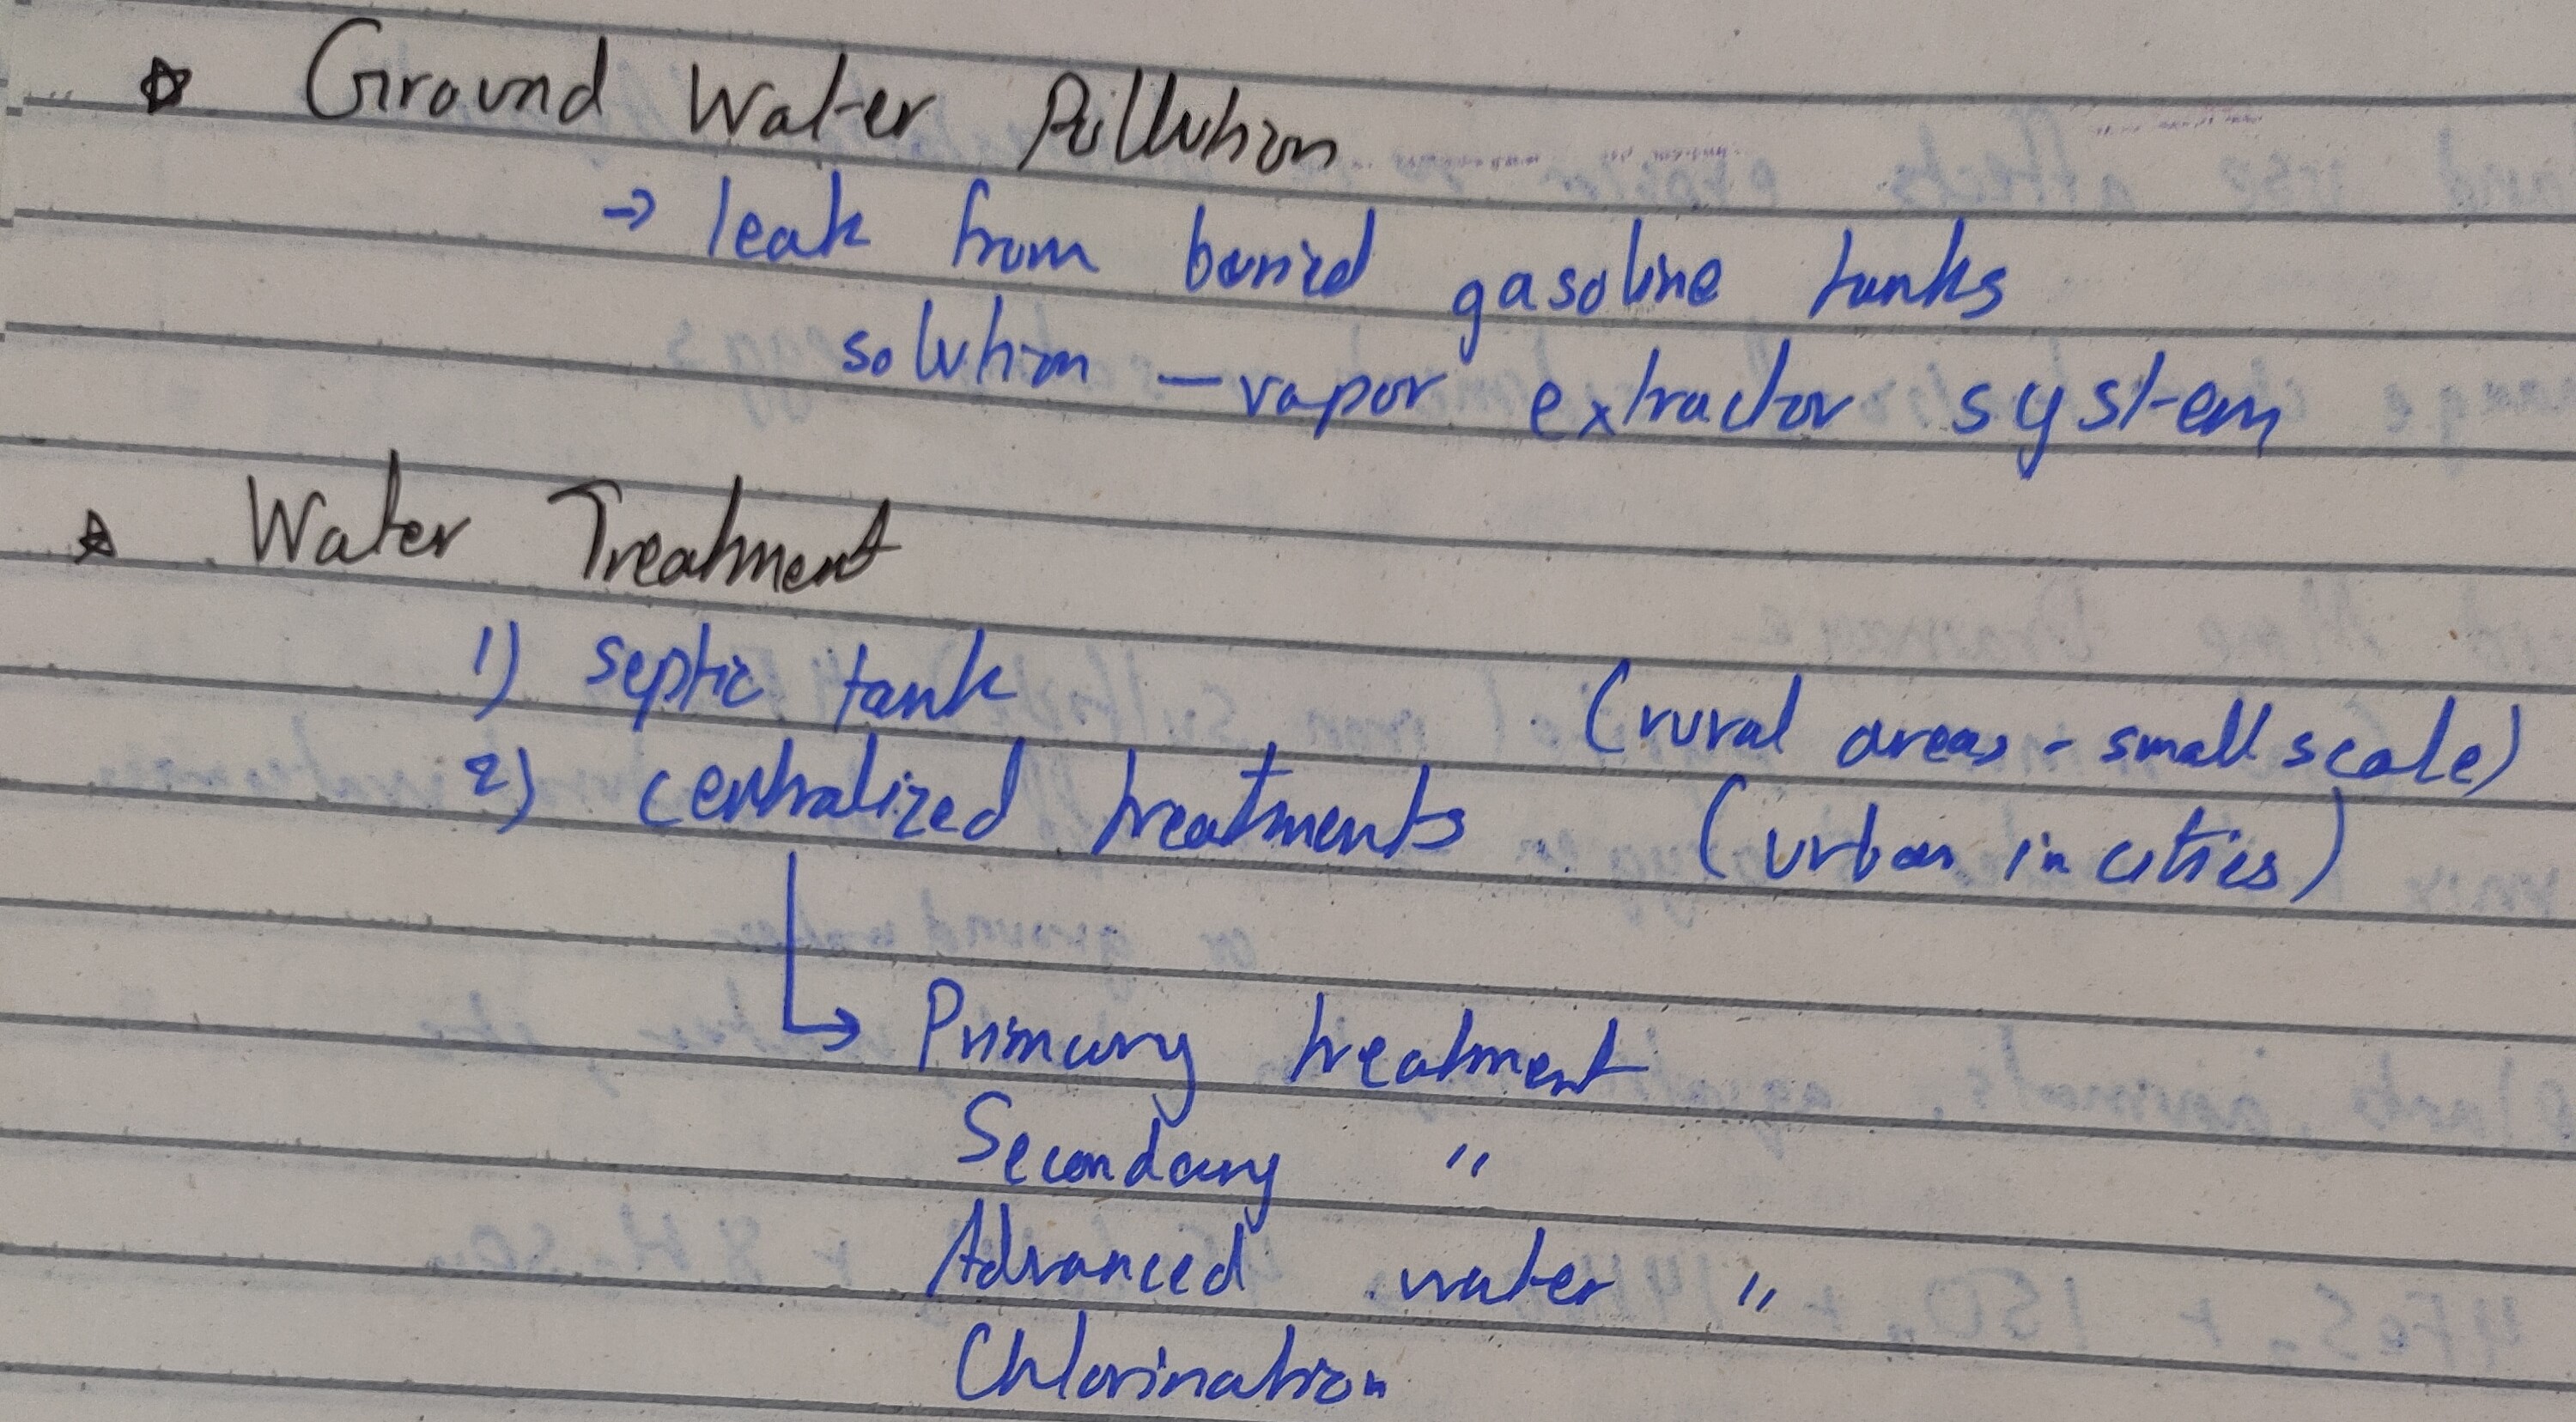 ☆ Ground Water Pollution
→ leak from buried gasoline tanks
solution - vapor extractor system
☆ Water Treatment
1) septic tank (rural areas - small scale)
2) centralized treatments (urban in cities)
↳ Primary treatment
Secondary "
Advanced water "
Chlorination